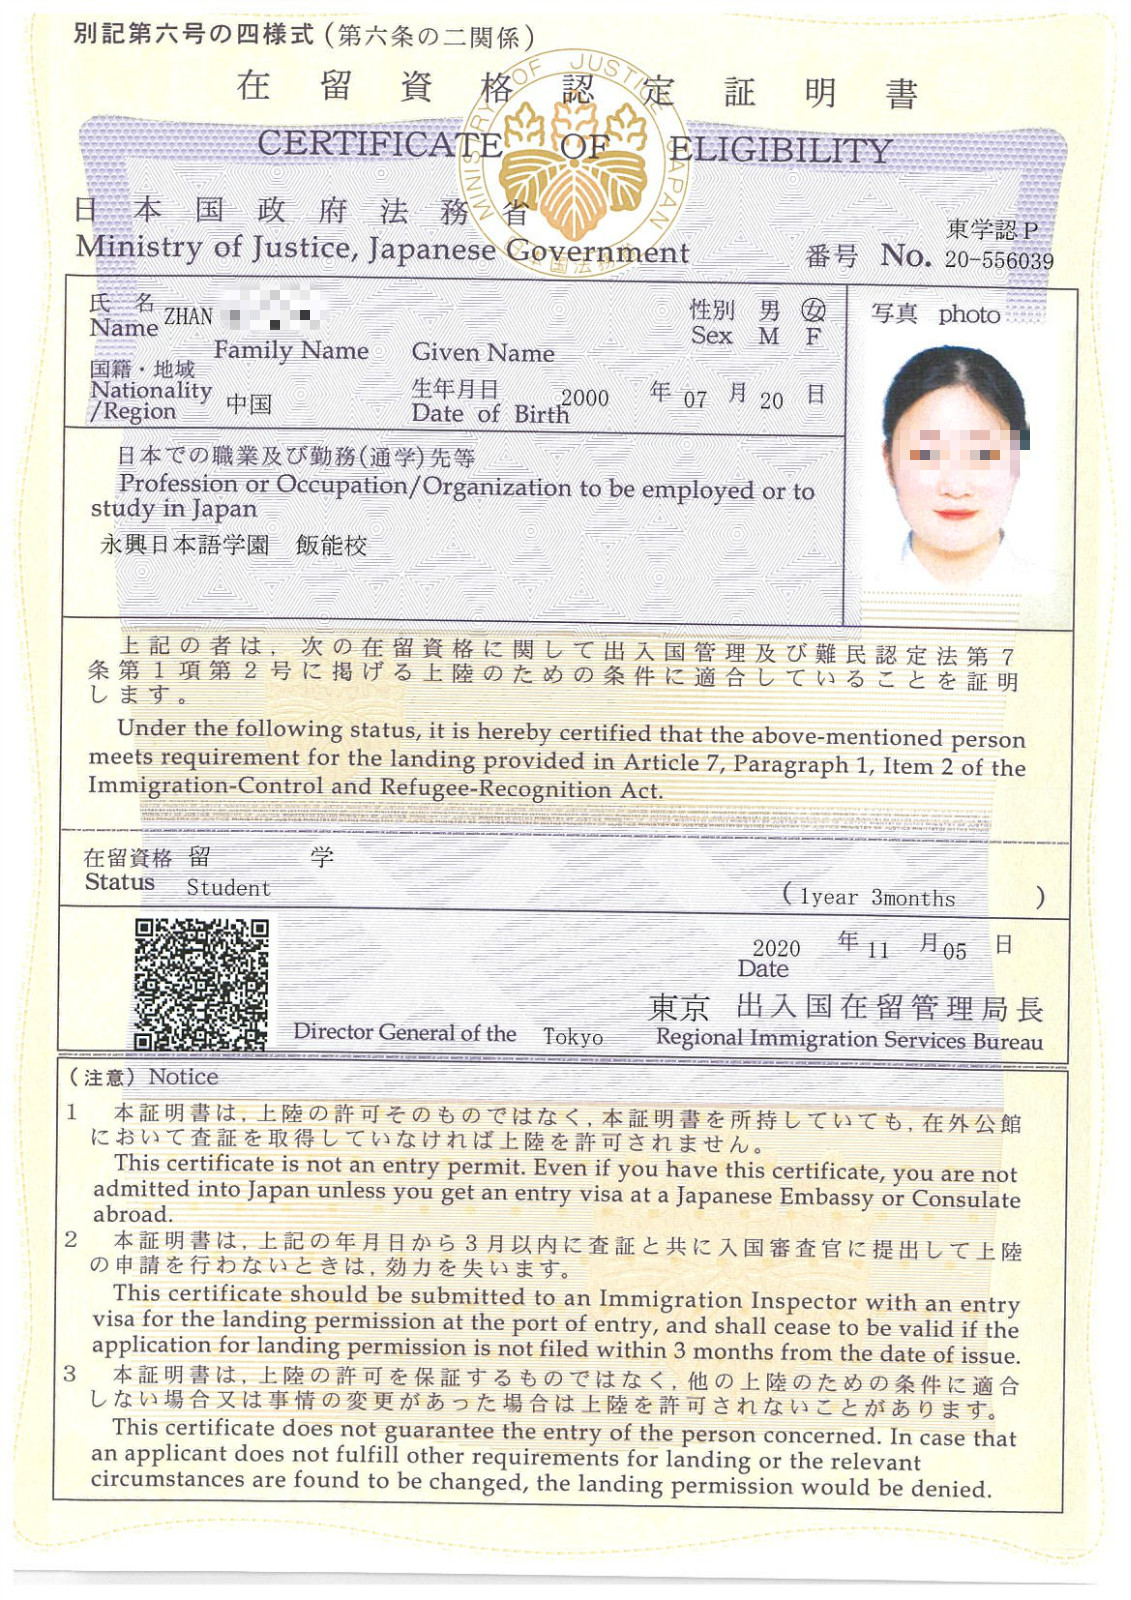 別記第六号の四様式（第六条の二関係）
在留資格認定証明書
CERTIFICATE OF ELIGIBILITY
MINISTRY OF JUSTICE JAPAN
日本国政府法務省
Ministry of Justice, Japanese Government
東学認P
番号 No. 20-556039
氏名 ZHAN
Name
Family Name Given Name
性別 男 女
Sex M F
写真 photo
国籍・地域
Nationality
/Region 中国
生年月日 2000 年 07 月 20 日
Date of Birth
日本での職業及び勤務(通学)先等
Profession or Occupation/Organization to be employed or to
study in Japan
永興日本語学園 飯能校
上記の者は, 次の在留資格に関して出入国管理及び難民認定法第7
条第1項第2号に掲げる上陸のための条件に適合していることを証明
します。
Under the following status, it is hereby certified that the above-mentioned person
meets requirement for the landing provided in Article 7, Paragraph 1, Item 2 of the
Immigration-Control and Refugee-Recognition Act.
在留資格 留 学
Status Student
(1year 3months )
2020 年 11 月 05 日
Date
東京 出入国在留管理局長
Director General of the Tokyo Regional Immigration Services Bureau
(注意) Notice
1 本証明書は, 上陸の許可そのものではなく, 本証明書を所持していても, 在外公館
において査証を取得していなければ上陸を許可されません。
This certificate is not an entry permit. Even if you have this certificate, you are not
admitted into Japan unless you get an entry visa at a Japanese Embassy or Consulate
abroad.
2 本証明書は, 上記の年月日から3月以内に査証と共に入国審査官に提出して上陸
の申請を行わないときは, 効力を失います。
This certificate should be submitted to an Immigration Inspector with an entry
visa for the landing permission at the port of entry, and shall cease to be valid if the
application for landing permission is not filed within 3 months from the date of issue.
3 本証明書は, 上陸の許可を保証するものではなく, 他の上陸のための条件に適合
しない場合又は事情の変更があった場合は上陸を許可されないことがあります。
This certificate does not guarantee the entry of the person concerned. In case that
an applicant does not fulfill other requirements for landing or the relevant
circumstances are found to be changed, the landing permission would be denied.